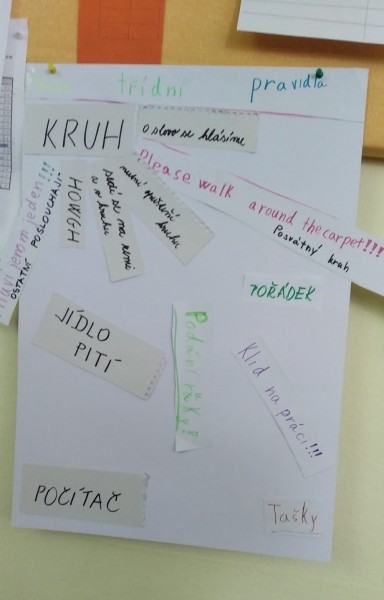 třídní pravidla
KRUH
o slovo se hlásíme
Please walk around the carpet!!!
Posvátný kruh
jeden!!!
OSTATNÍ POSLOUCHAJÍ
HOWGH
sedí se na zemi
a v kruhu
kruhu
POŘÁDEK
JÍDLO
PITÍ
Podání ruky!
Klid na práci!!!
POČÍTAČ
Tašky